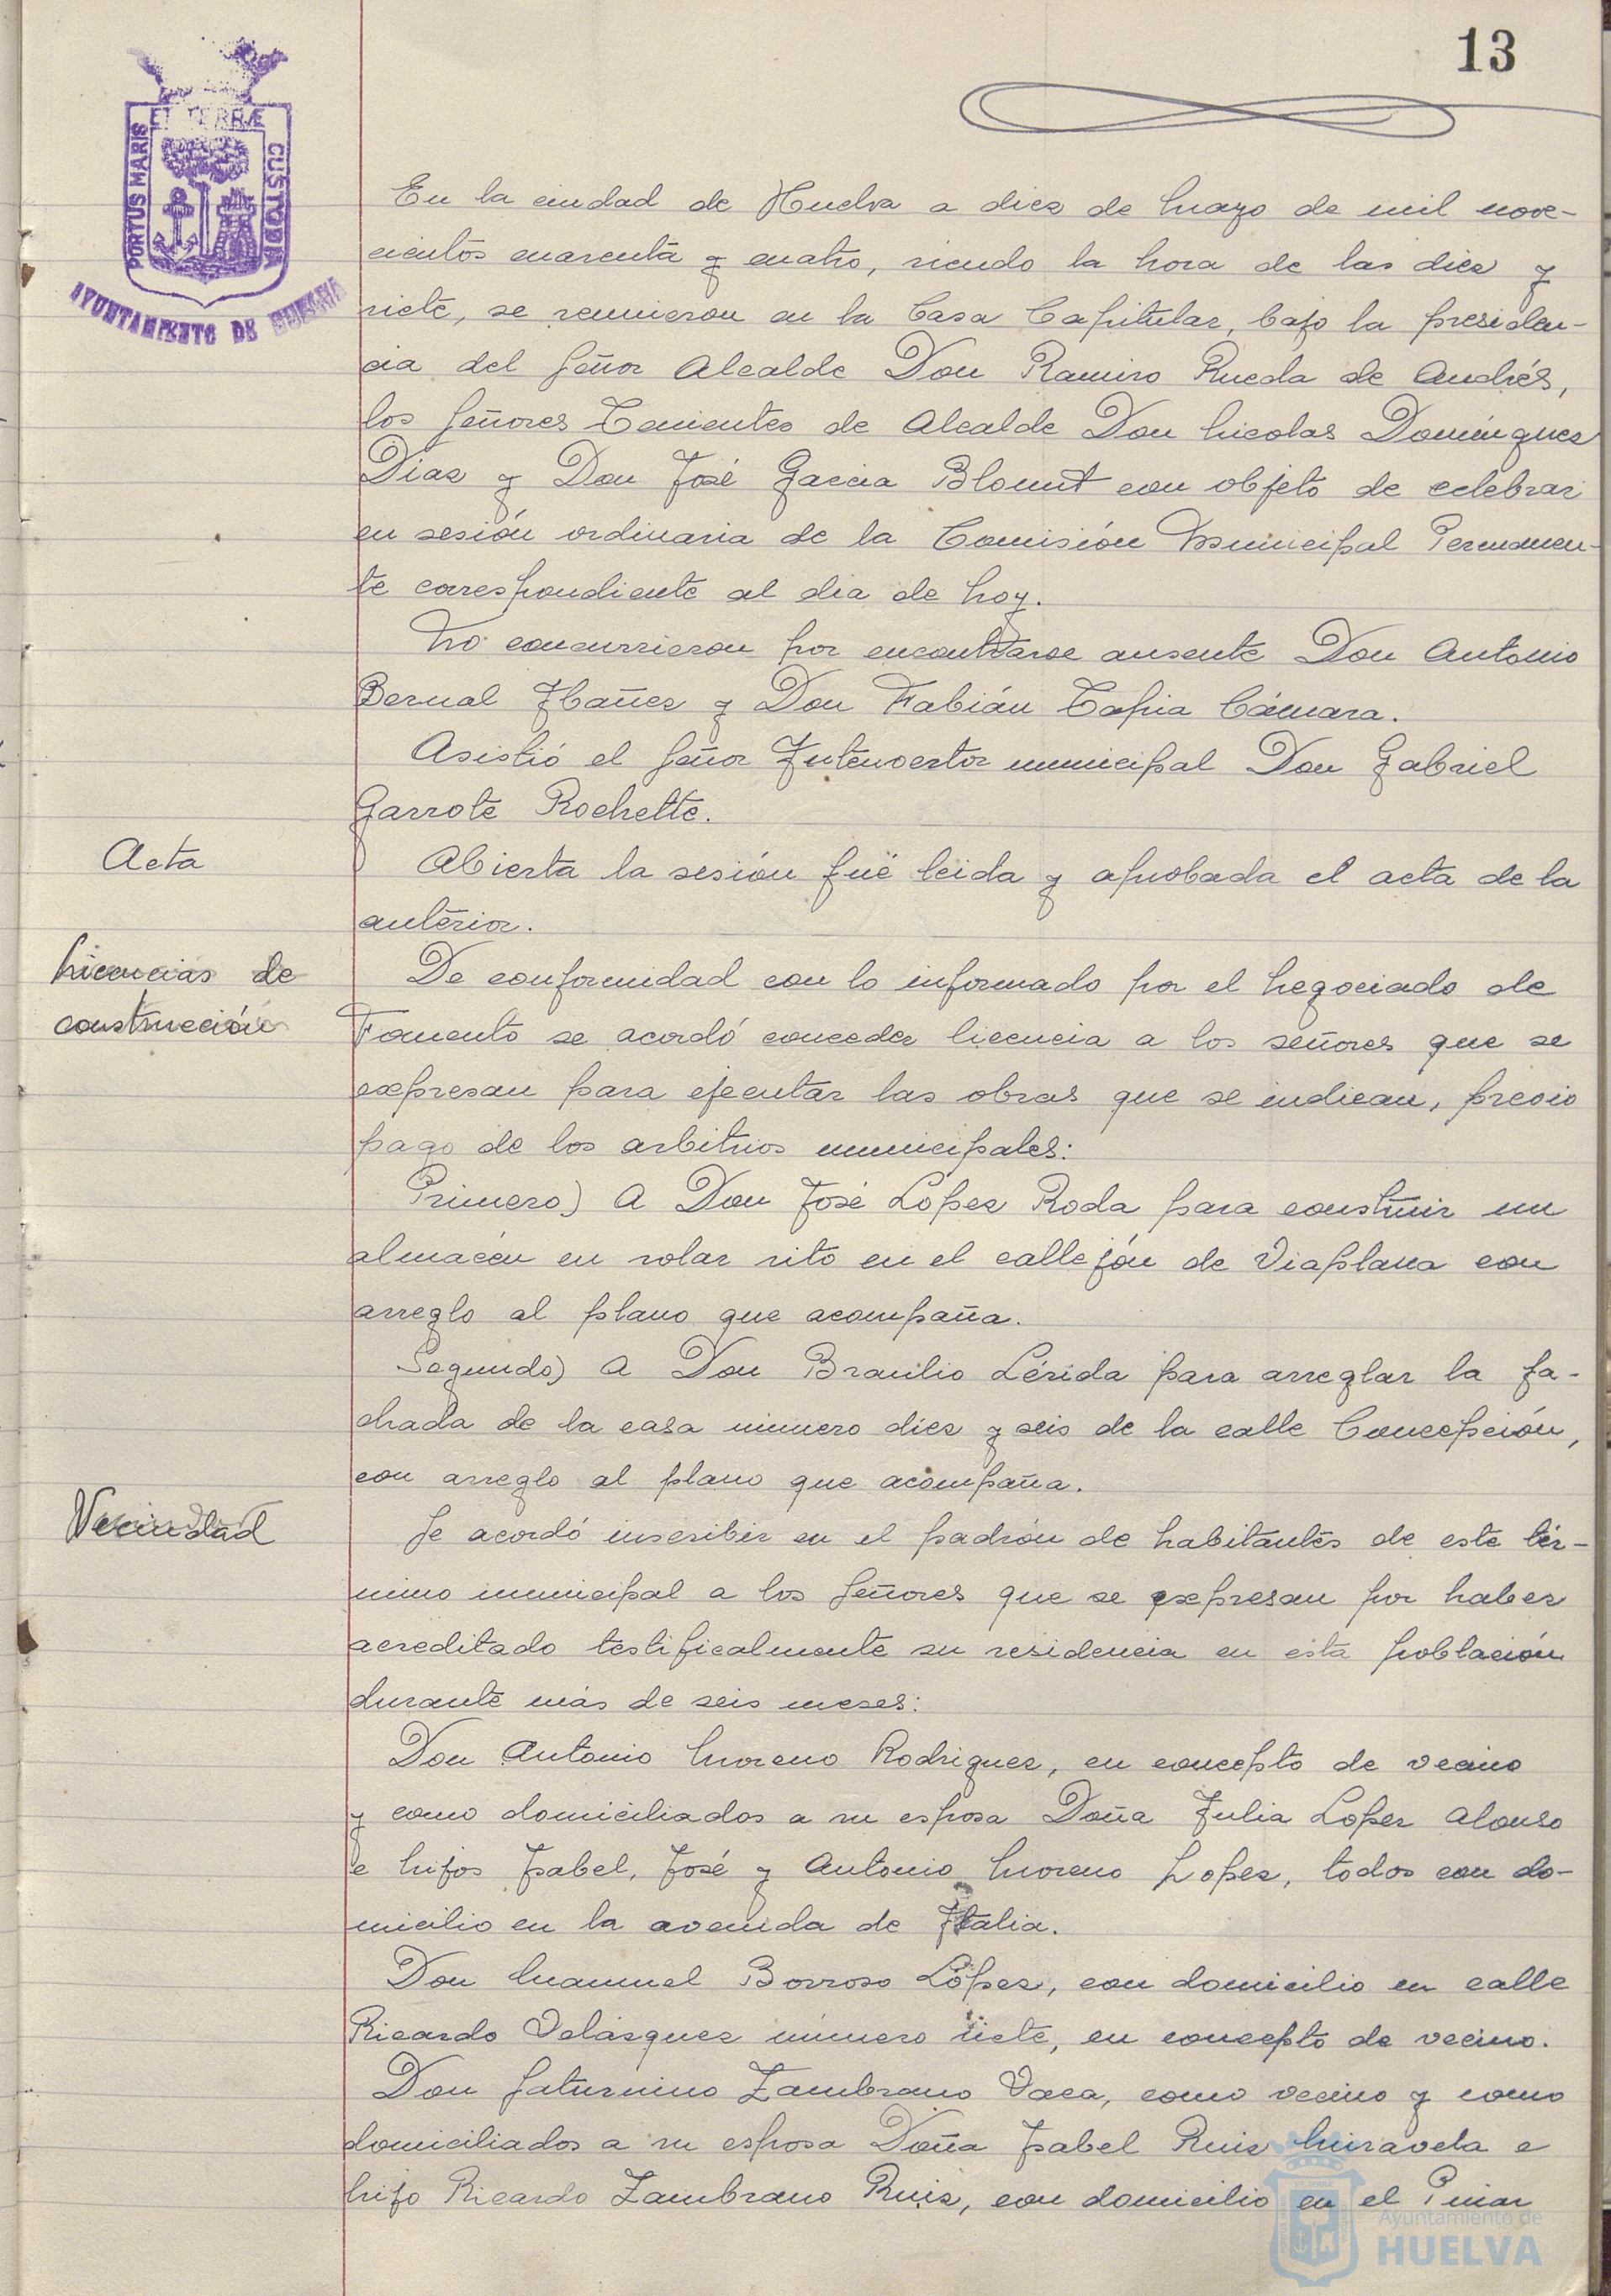 13
PORTUS MARIS ET TERRÆ CUSTODIA
AYUNTAMIENTO DE HUELVA
En la ciudad de Huelva a diez de Mayo de mil nove-
cientos cuarenta y cuatro, siendo la hora de las diez y
siete, se reunieron en la Casa Capitular, bajo la presiden-
cia del Señor Alcalde Don Ramiro Rueda de Andrés,
los Señores Tenientes de Alcalde Don Nicolas Domínguez
Diaz y Don José Garcia Blount con objeto de celebrar
en sesión ordinaria de la Comisión Municipal Permanen-
te correspondiente al dia de hoy.
No concurrieron por encontrarse ausente Don Antonio
Bernal Ibañez y Don Fabián Tapia Cámara.
Asistió el Señor Interventor municipal Don Gabriel
Garrote Rochette.
Acta
Abierta la sesión fué leida y aprobada el acta de la
anterior.
Licencias de
construcción
De conformidad con lo informado por el Negociado de
Fomento se acordó conceder licencia a los señores que se
expresan para ejecutar las obras que se indican, previo
pago de los arbitrios municipales:
Primero) A Don José Lopez Roda para construir un
almacén en solar sito en el callejón de Viaplana con
arreglo al plano que acompaña.
Segundo) A Don Braulio Lérida para arreglar la fa-
chada de la casa número diez y seis de la calle Concepción,
con arreglo al plano que acompaña.
Vecindad
Se acordó inscribir en el padrón de habitantes de este tér-
mino municipal a los Señores que se expresan por haber
acreditado testificalmente su residencia en esta población
durante más de seis meses:
Don Antonio Moreno Rodriguez, en concepto de vecino
y como domiciliados a su esposa Doña Julia Lopez Alonso
e hijos Isabel, José y Antonio Moreno Lopez, todos con do-
micilio en la avenida de Italia.
Don Manuel Borroso López, con domicilio en calle
Ricardo Velásquez número siete, en concepto de vecino.
Don Saturnino Zambrano Vaca, como vecino y como
domiciliados a su esposa Doña Isabel Ruiz Miravela e
hijo Ricardo Zambrano Ruiz, con domicilio en el Pinar
Ayuntamiento de
HUELVA